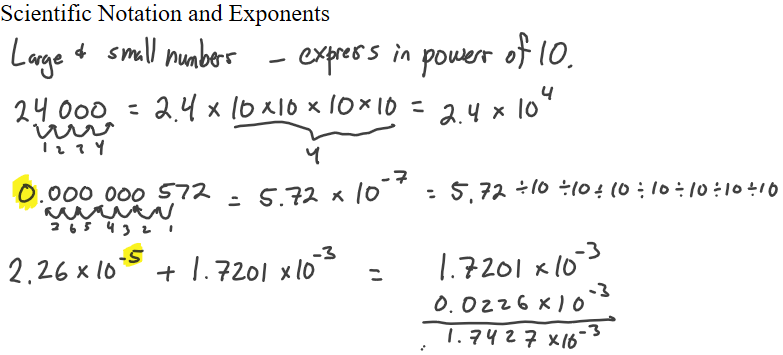 Scientific Notation and Exponents
Large & small numbers – express in powers of 10.
24 000 = 2.4 × 10 × 10 × 10 × 10 = 2.4 × 10⁴
1 2 3 4 4
0.000 000 572 = 5.72 × 10⁻⁷ = 5.72 ÷ 10 ÷ 10 ÷ 10 ÷ 10 ÷ 10 ÷ 10 ÷ 10
7 6 5 4 3 2 1
2.26 × 10⁻⁵ + 1.7201 × 10⁻³ = 1.7201 × 10⁻³
0.0226 × 10⁻³
1.7427 × 10⁻³